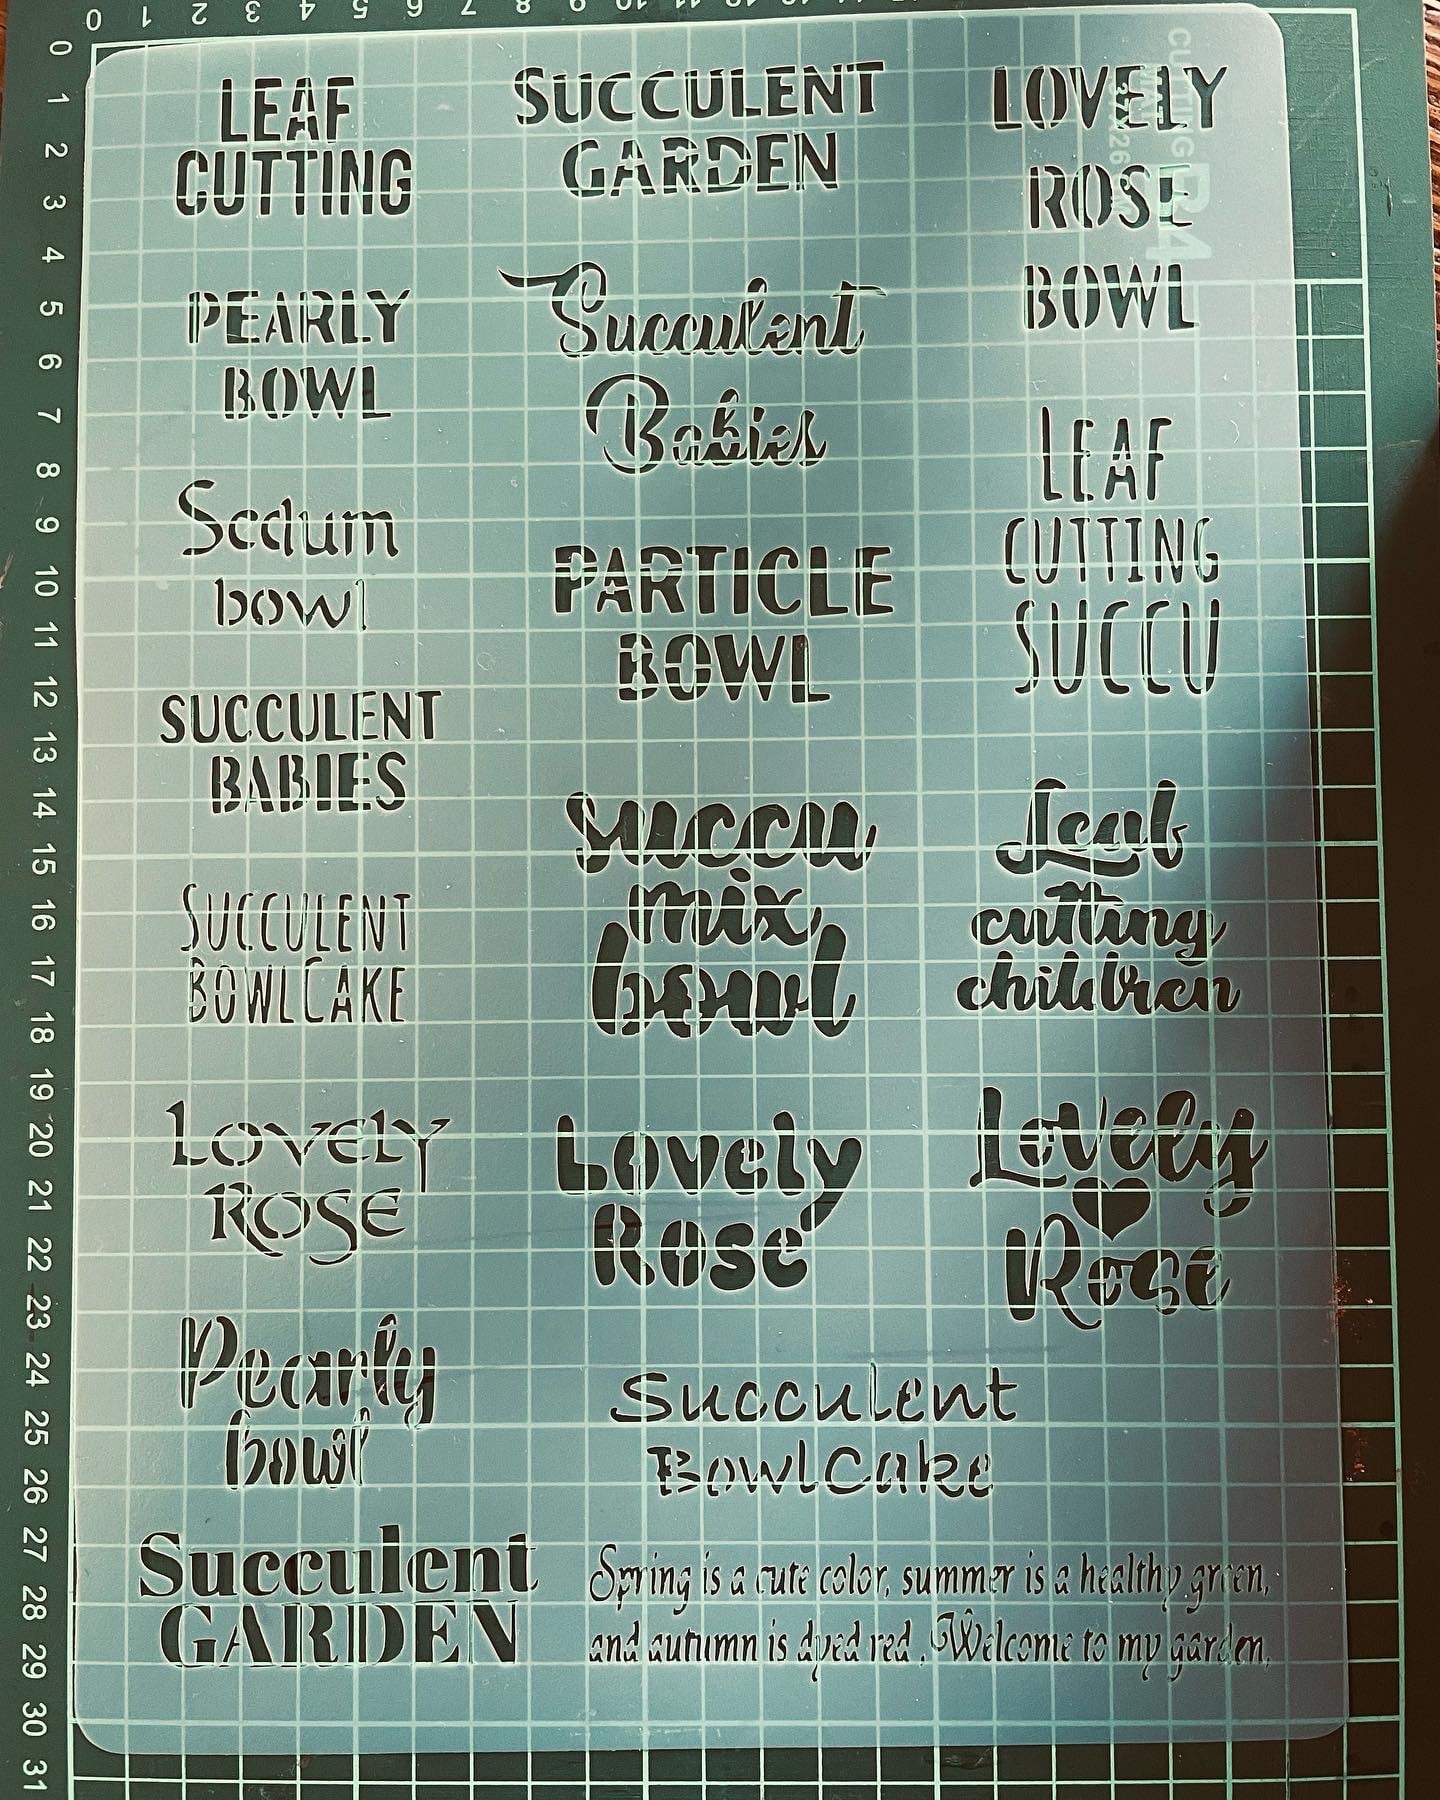 0 1 2 3 4 5 6 7 8 9 10 11 12
0 1 2 3 4 5 6 7 8 9 10 11 12 13 14 15 16 17 18 19 20 21 22 23 24 25 26 27 28 29 30 31
LEAF
CUTTING
PEARLY
BOWL
Sedum
bowl
SUCCULENT
BABIES
SUCCULENT
BOWLCAKE
LOVELY
ROSE
Pearly
bowl
Succulent
GARDEN
SUCCULENT
GARDEN
Succulent
Babies
PARTICLE
BOWL
succu
mix
bowl
Lovely
Rose
Succulent
BowlCake
LOVELY
ROSE
BOWL
LEAF
CUTTING
SUCCU
Leaf
cutting
children
Lovely
Rose
Spring is a cute color, summer is a healthy green,
and autumn is dyed red , Welcome to my garden,
CUTTING
MAT
B4